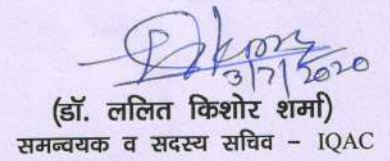 3/7/2020
(डॉ. ललित किशोर शर्मा)
समन्वयक व सदस्य सचिव – IQAC